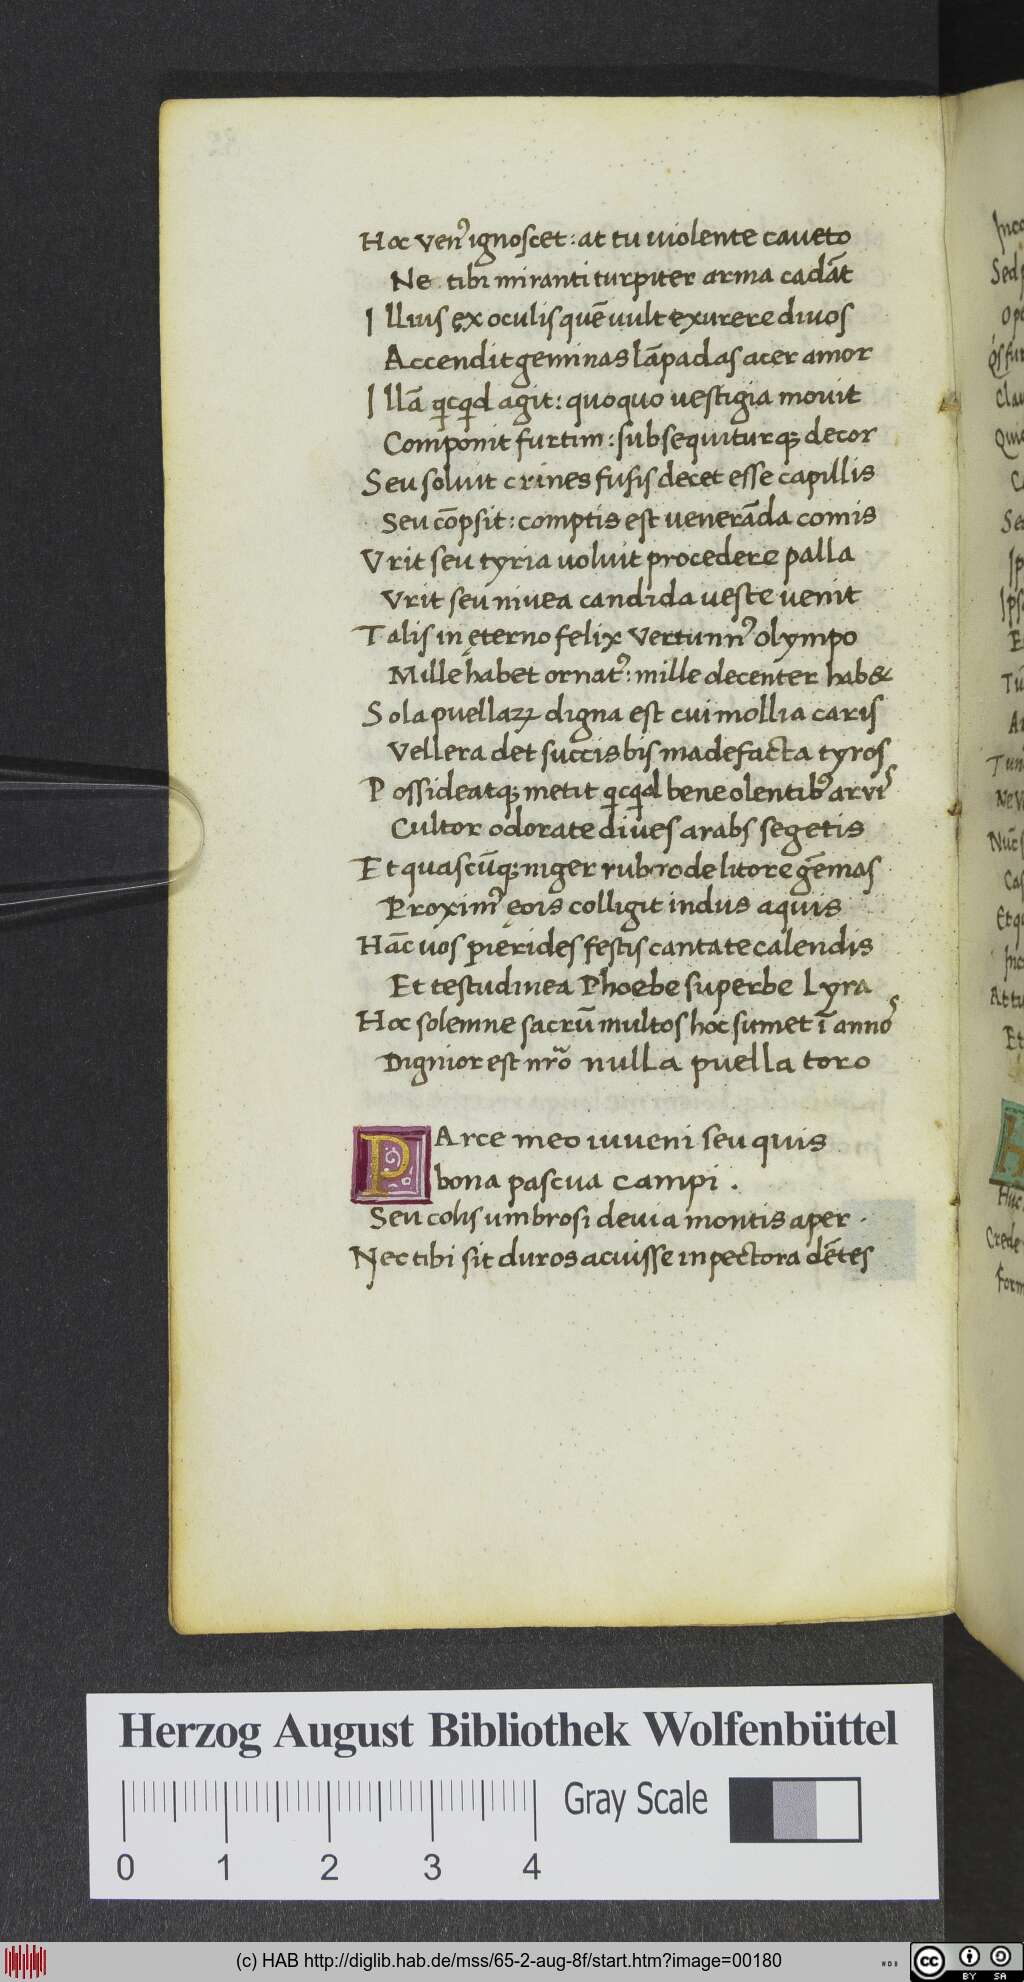 Hoc ven᾿ ignoscet: at tu uiolente caueto
Ne tibi miranti turpiter arma cadāt
Illius ęx oculis quē uult exurere diuos
Accendit geminas lāpadas acer amor
Illā qcqd agit: quoquo uestigia mouit
Componit furtim: subsequiturq; decor
Seu soluit crines fusis decet esse capillis
Seu cōpsit: comptis est venerāda comis
Vrit seu tyria uoluit procedere palla
Vrit seu niuea candida ueste uenit
Talis in ęterno felix Vertunn᾿ olympo
Mille habet ornat᾿: mille decenter hab&
Sola puellaꝝ digna est cui mollia caris
Vellera det succis bis madefacta tyros
Possideatq; metit qcqd bene olentib᾿ arvis
Cultor odorate diues arabs segetis
Et quascūq; niger rubro de litore gēmas
Proxim᾿ ęois colligit indus aquis
Hāc uos pierides festis cantate calendis
Et testudinea Phoebe superbe Lyra
Hoc solemne sacrū multos hoc sumet ī annos
Dignior est nr̃o nulla puella toro
PArce meo iuueni seu quis
bona pascua campi .
Seu colis umbrosi deuia montis aper .
Nec tibi sit duros acuisse in pectora dētes
Herzog August Bibliothek Wolfenbüttel
Gray Scale
0 1 2 3 4
(c) HAB http://diglib.hab.de/mss/65-2-aug-8f/start.htm?image=00180
WDB
cc BY SA